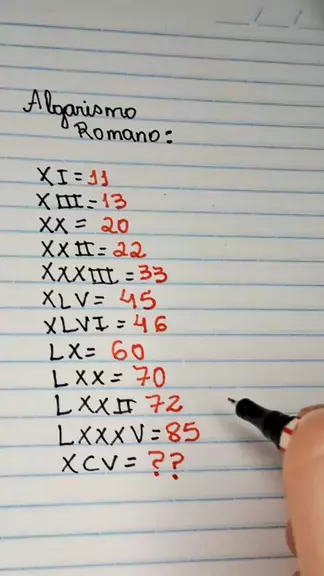 Algarismo
Romano:
XI = 11
XIII = 13
XX = 20
XXII = 22
XXXIII = 33
XLV = 45
XLVI = 46
LX = 60
LXX = 70
LXXII 72
LXXXV = 85
XCV = ??